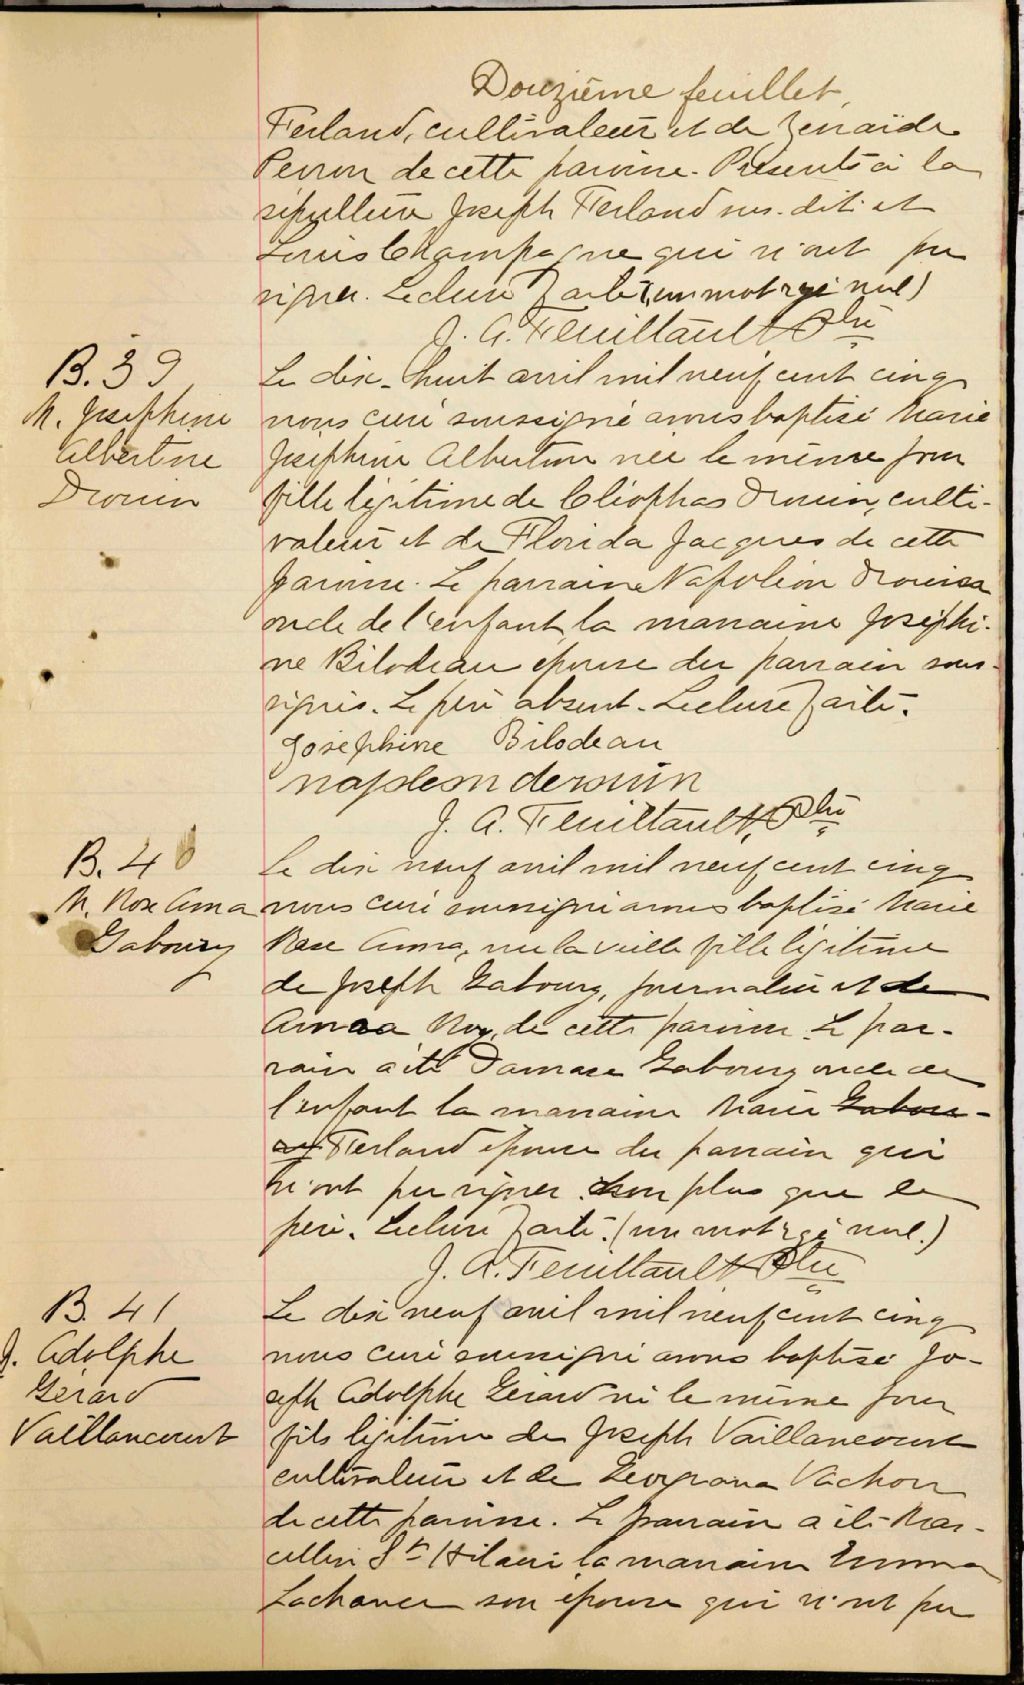 Douzième feuillet
Ferland, cultivateur et de Zénaïde
Perron de cette paroisse. Présents à la
sépulture Joseph Ferland sus-dit et
Louis Champagne qui n'ont pu
signer. Lecture faite. (un mot rayé nul)
J. A. Feuiltault Ptre
B. 39
M. Josephine
Albertine
Drouin
Le dix-huit avril mil neuf cent cinq
nous curé soussigné avons baptisé Marie
Joséphine Albertine née le même jour
fille légitime de Cléophas Drouin, culti-
vateur et de Florida Jacques de cette
paroisse. Le parrain Napoléon Drouin
oncle de l'enfant, la marraine Joséphi-
ne Bilodeau épouse du parrain sous-
signés. Le père absent. Lecture faite.
Josephine Bilodeau
napoleon derouin
J. A. Feuiltault, Ptre
B. 40
M. Rose Anna
Gaboury
Le dix neuf avril mil neuf cent cinq
nous curé soussigné avons baptisé Marie
Rose Anna, née la veille fille légitime
de Joseph Gaboury, journalier et de
Anna Roy, de cette paroisse. Le par-
rain a été Damase Gaboury oncle de
l'enfant la marraine Marie Gabou-
ry Ferland épouse du parrain qui
n'ont pu signer non plus que le
père. Lecture faite. (un mot rayé nul.)
J. A. Feuiltault Ptre
B. 41
J. Adolphe
Gérard
Vaillancourt
Le dix neuf avril mil neuf cent cinq
nous curé soussigné avons baptisé Jo-
seph Adolphe Gérard né le même jour
fils légitime de Joseph Vaillancourt
cultivateur et de Georgiana Vachon
de cette paroisse. Le parrain a été Mar-
cellin St Hilaire la marraine Emma
Lachance son épouse qui n'ont pu